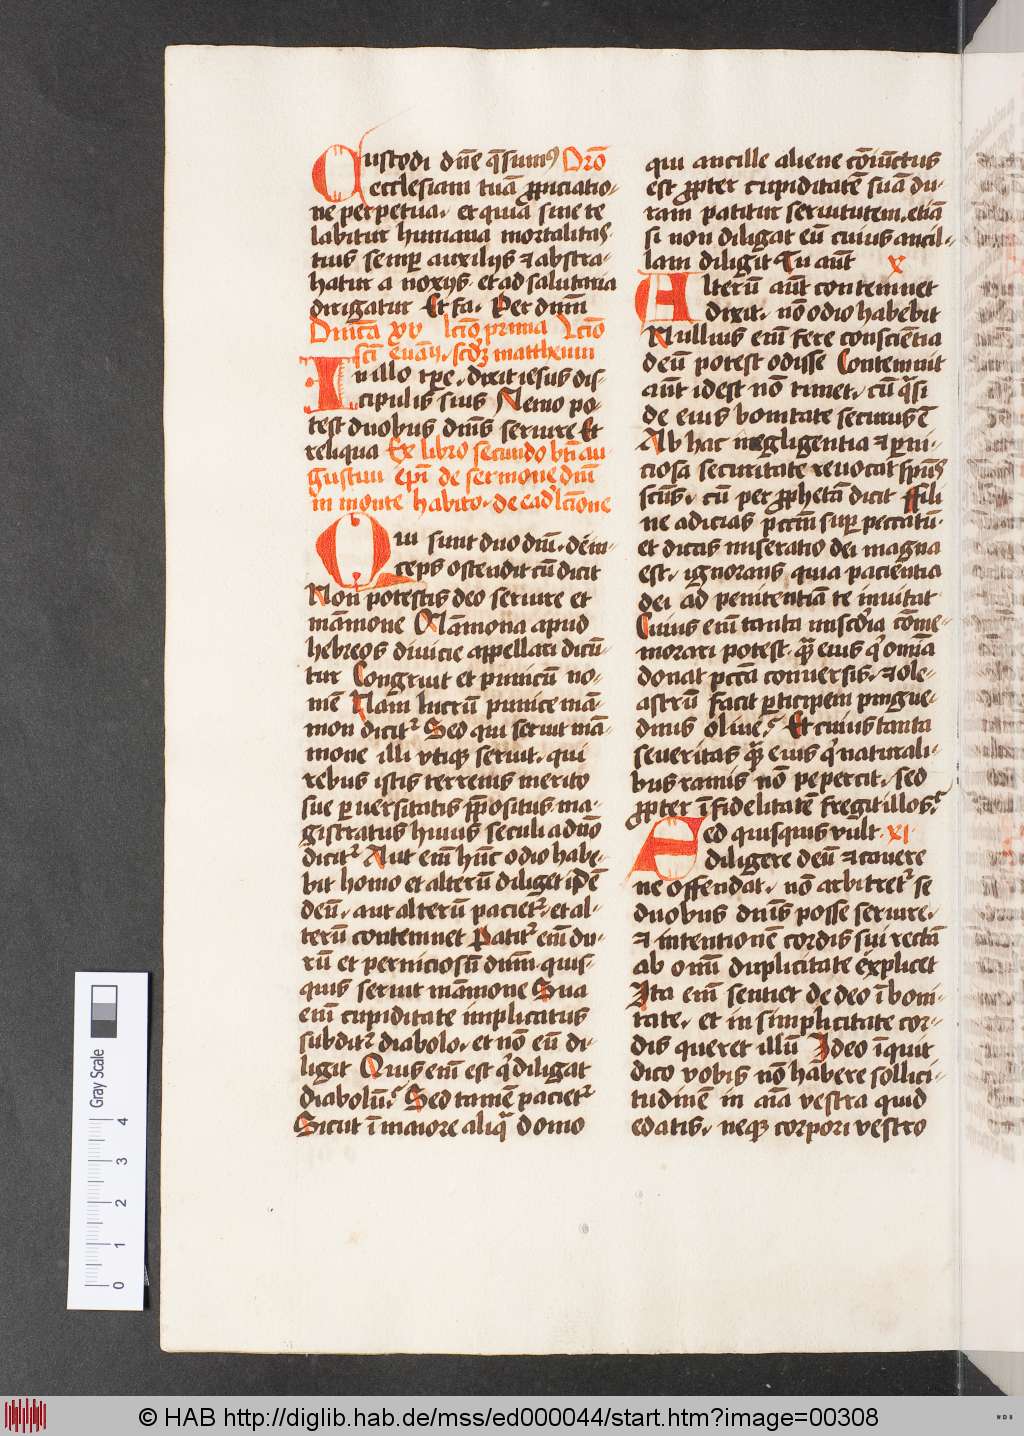 Custodi dn̄e q̄sumꝰ Orō
ecclesiam tuā ꝓpiciatio-
ne perpetua. et quia sine te
labitur humana mortalitas.
tuis semꝑ auxilijs ⁊ abstra-
hatur a noxijs. et ad salutaria
dirigatur Et fa. Per dnm̄
Dnīca xv lctīo prima Lctīo
scī ewan. scdꝫ mattheum
In illo tꝑe. dixit iesus dis-
cipulis suis Nemo po-
test duobus dnīs seruire Et
reliqua Ex libro secundo btī au
gustini epī de sermone dnī
in monte habito. de eadē lctīone
Qui sunt duo dnī. dein-
ceps ostendit cū dicit
Non potestis deo seruire et
māmone Māmona apud
hebreos diuicie appellari dicū-
tur Congruit et punicū no-
mē Nam lucrū punice mā-
mon dicitr̄ Sed qui seruit mā-
mone illi vtiqꝫ seruit. qui
rebus istis terrenis merito
sue ꝑuersitatis p̄positus ma-
gistratus huius seculi a dnō
dicitr̄ Aut enī hūc odio habe-
bit homo et alterū diliget idē
deū. aut alterū pacietr̄. et al-
terū contemnet Patitr̄ enī du-
rū et perniciosū dnm̄. quis-
quis seruit māmone Sua
enī cupiditate implicatus
subditr̄ diabolo. et nō eū di-
ligit Quis enī est qͥ diligat
diabolū. Sed tamē pacietr̄
Sicut ī maiore aliqͣ domo
qui ancille aliene cōiūctus
est ꝓpter cupiditatē suā du-
ram patitur seruitutem. etiā
si non diligat eū cuius ancil-
lam diligit Tu aūt x
Alterū aūt contemnet
dixit. nō odio habebit
Nullius enī fere conscīentia
deū potest odisse Contemnit
aūt idest nō timet. cū qͣsi
de eius bonitate securus ē
Ab hac negligentia ⁊ ꝑni-
ciosa securitate reuocat spūs
scūs. cū per ꝓphetā dicit ffili
ne adicias pctm̄ suꝑ peccatū.
et dicas miseratio dei magna
est. ignorans quia pacientia
dei ad penitentiā te inuitat
Cuius enī tanta miscdīa cōme-
morari potest. qͣꝫ eius qͥ omīa
donat pctā conuersis. ⁊ ole-
astrū facit ꝑticipem pingue-
dinis oliue. Et cuius tanta
seueritas qͣꝫ eius qͥ naturali-
bus ramis nō pepercit. sed
ꝓpter īfidelitatē fregit illos.
Sed quisquis vult. xi
diligere deū ⁊ cauere
ne offendat. nō arbitretr̄ se
duobus dnīs posse seruire.
⁊ intentionē cordis sui rectā
ab omī duplicitate explicet
Ita enī sentiet de deo ī boni-
tate. et in simplicitate cor-
dis queret illū Ideo īquit
dico vobis nō habere sollici-
tudinē in aīa vestra quid
edatis. neqꝫ corpori vestro
Gray Scale
0 1 2 3 4
© HAB http://diglib.hab.de/mss/ed000044/start.htm?image=00308